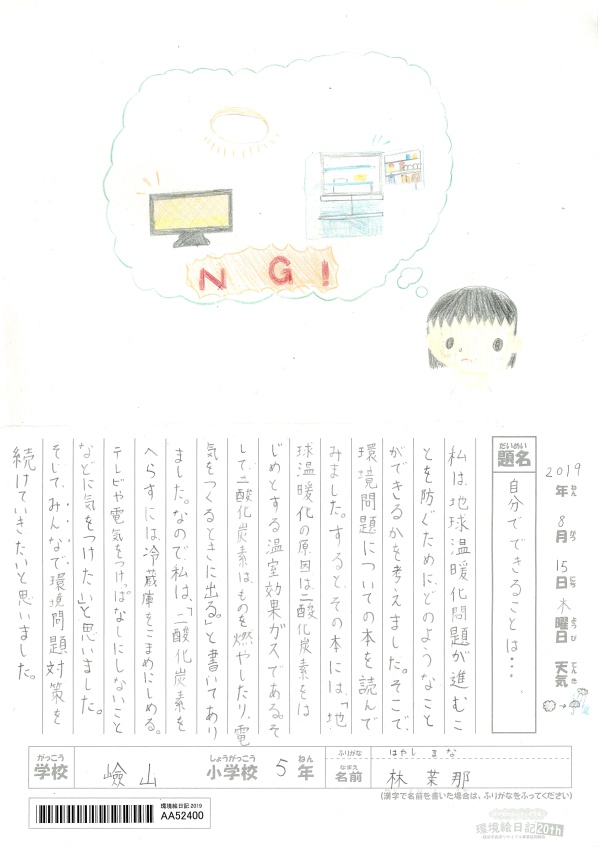 NG!
2019年 8月 15日 木曜日 天気
ねん がつ にち ようび てんき
だいめい
題名 自分でできることは・・・
私は、地球温暖化問題が進むこ
とを防ぐために、どのようなこと
ができるかを考えました。そこで、
環境問題についての本を読んで
みました。すると、その本には、「地
球温暖化の原因は二酸化炭素をは
じめとする温室効果ガスである。そ
して、二酸化炭素は、ものを燃やしたり、電
気をつくるときに出る。」と書いてあり
ました。なので私は、「二酸化炭素を
へらすには、冷蔵庫をこまめにしめる。
テレビや電気をつけっぱなしにしないこと
などに気をつけたい」と思いました。
そして、みんなで環境問題対策を
続けていきたいと思いました。
がっこう しょうがっこう ねん
学校 嶮山 小学校 5年
ふりがな はやし まな
なまえ
名前 林 茉那
(漢字で名前を書いた場合は、ふりがなをふってください)
環境絵日記 2019
AA52400
環境絵日記 20th